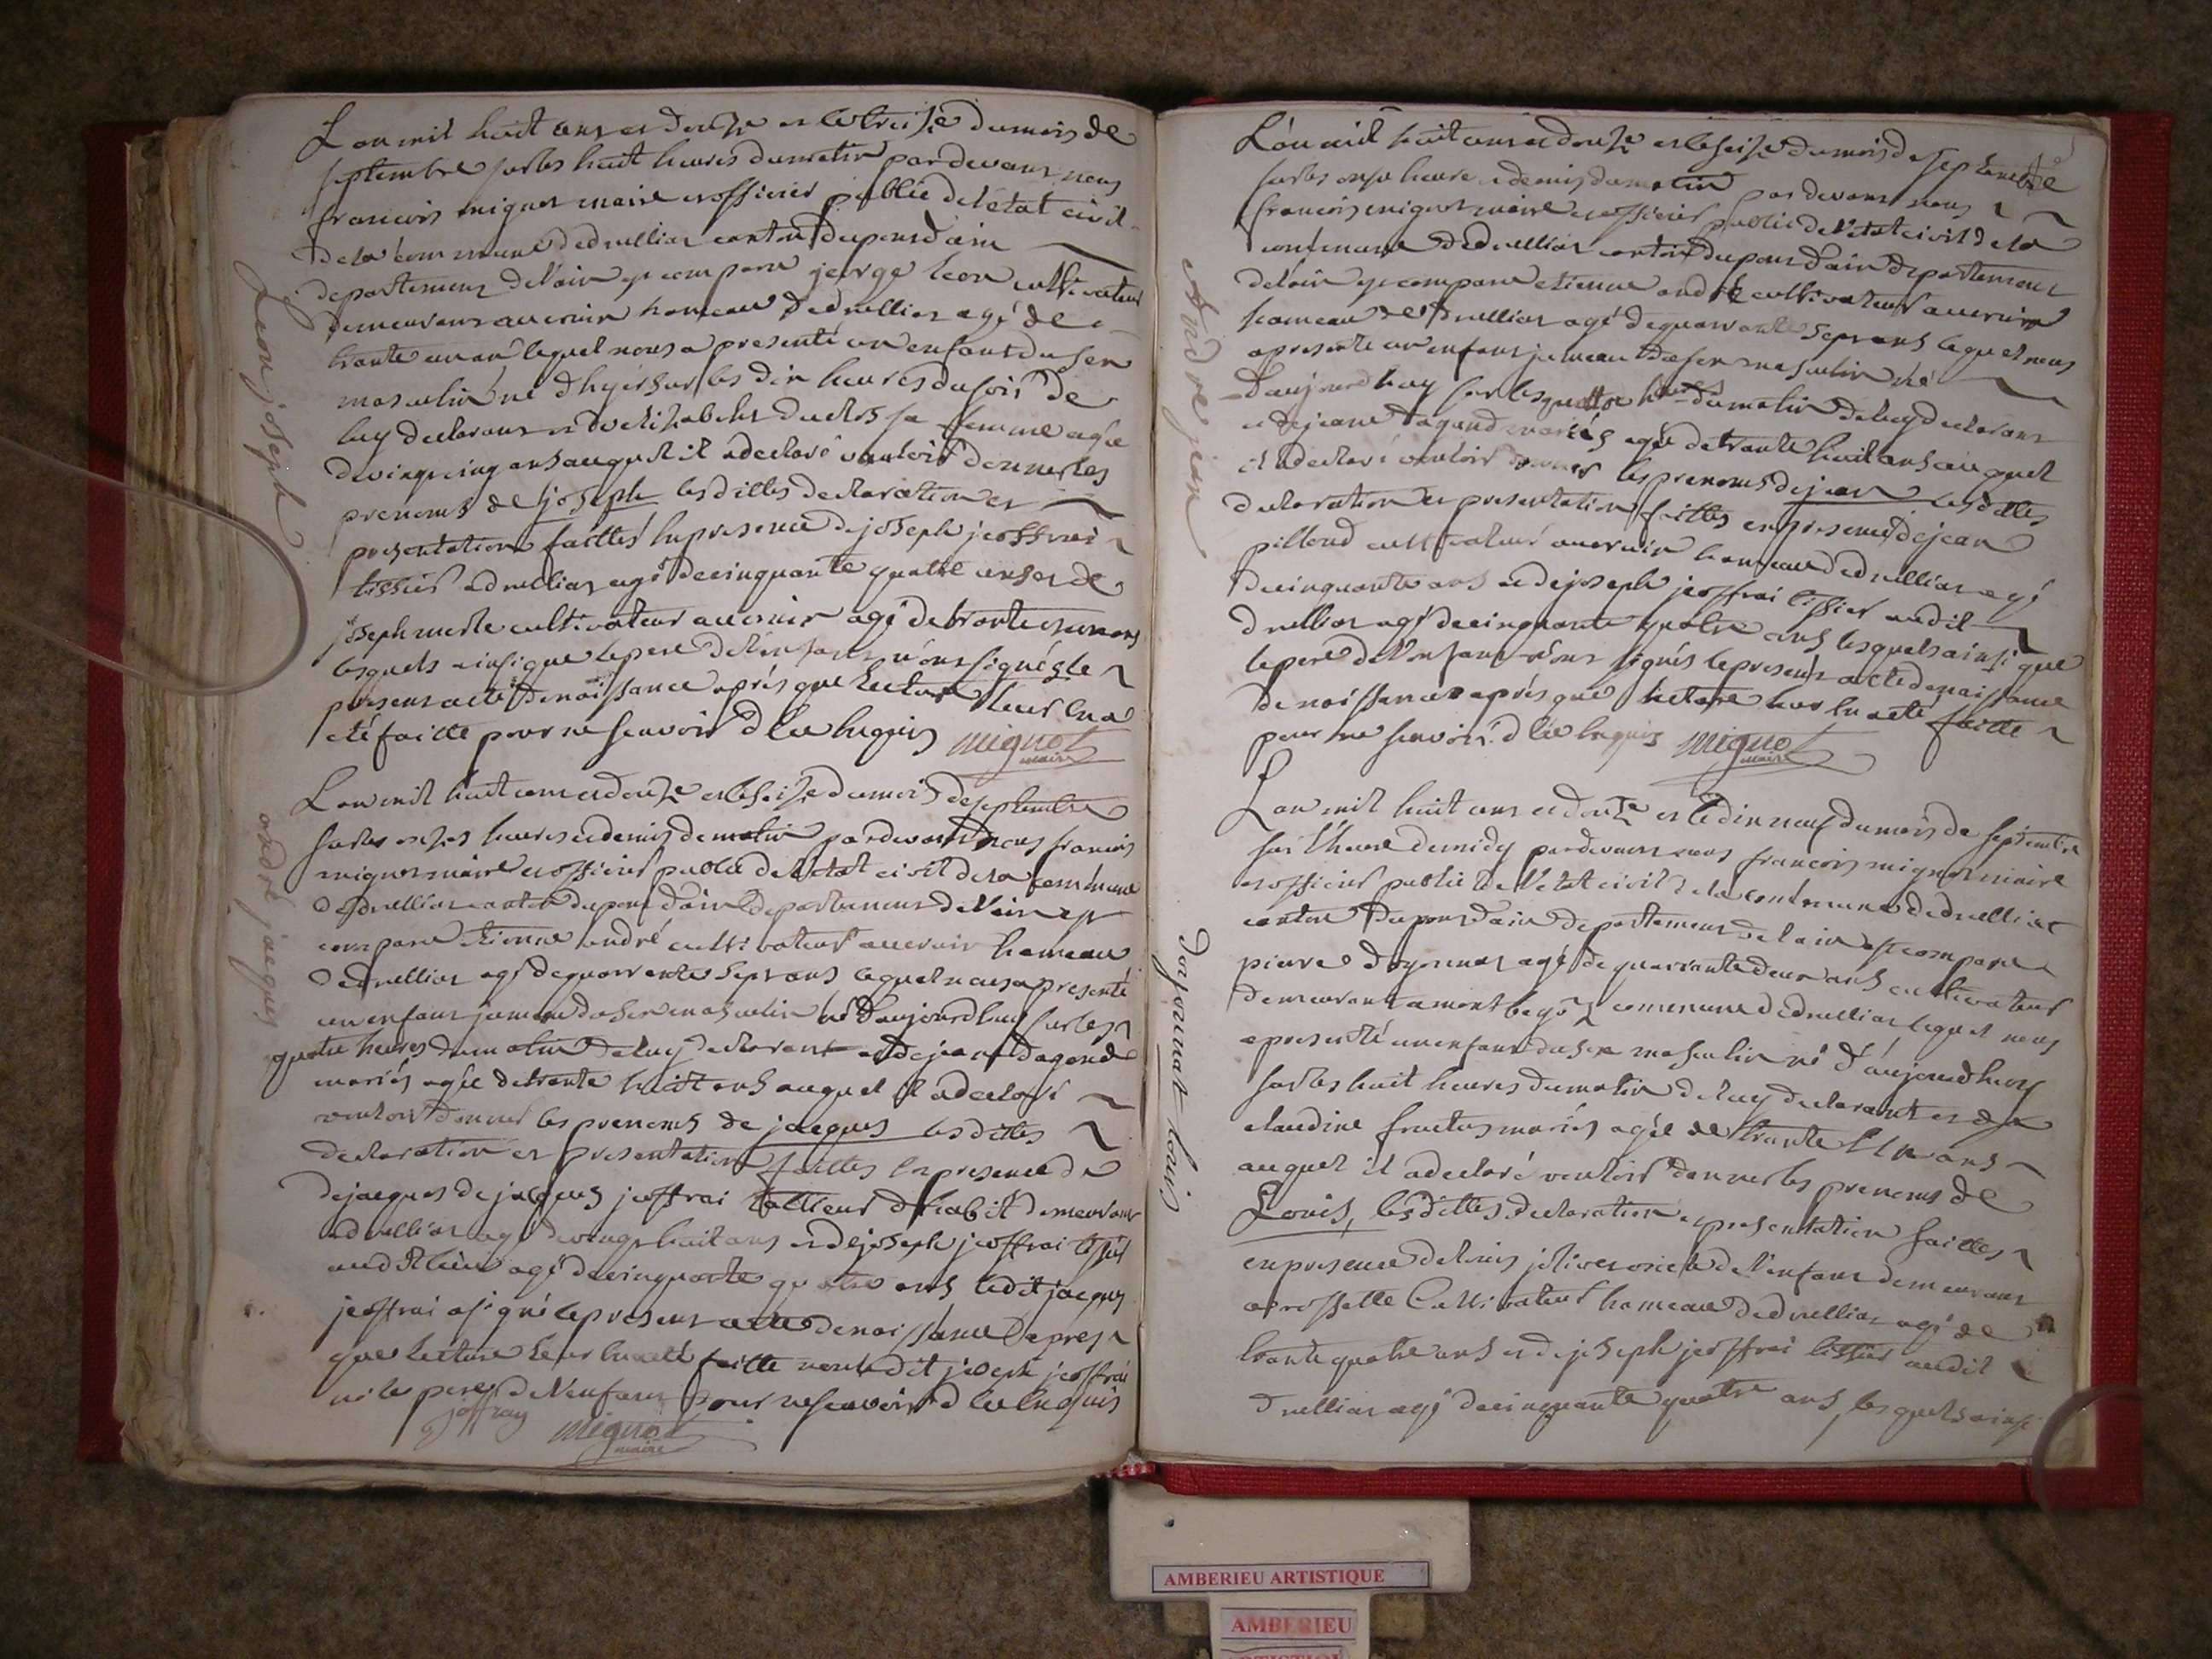 Leon joseph
L an mil huit cens et douze et le treize du mois de
septembre sur les huit heures du matin par devant nous
francois mignot maire et officier public de létat civil
de la commune de druillias canton du pont d'ain
departement de l'ain est comparu jeorge leon cultivateur
demeurant hameau de druillias agé de
trante un an lequel nous a presenté un enfant du sex
masculin né d'hyer sur les dix heures du soir de
luy declarant et de elizabeht duclos sa femme agée
de vingt cinq ans auquel il a declaré vouloir donner les
prenoms de joseph les dittes declaration et
presentation faittes en presence de joseph jeoffrai
tissier a druillias agé de cinquante quatre ans et de
joseph cultivateur agé de trante et un ans
lesquels ainsi que le pere de l'enfant n'ont signés le
present acte de naissance aprés que lecture leur en a
eté faitte pour ne scavoir d ce enquis mignot
maire
andré jacques
L an mil huit cens et douze et le seize du mois de septembre
sur les onzes heures et demis de matin par devant nous francois
mignot maire et officier public de l'etat civil de la commune
de druillias canton du pont d'ain departement de l'ain est
comparu etienne andré cultivateur hameau
de druillias agé de quarrante sept ans lequel nous a presenté
un enfant jumeau du sex masculin né d'aujourdhuy sur les
quatre heures du matin de luy declarant et de jeane dagand
mariés agée de trante huit ans auquel il a declaré
vouloir donner les prenoms de jacques les dittes
declaration et presentation faittes en presence de
de jacques de jacques jeoffrai tallieur d'habit demeurant
a druillias agé de vingt huit ans et de joseph jeoffrai tissier
audit lieu agé de cinquante quatre ans ledit jacques
jeoffrai a signé le present acte de naissance d'apres
que lecture leur en a eté faitte non ledit joseph jeoffrai
ni le pere de l'enfant pour ne scavoir d ce enquis
joffray mignot
maire
André jean
L'an mil huit cens et douze et le seize du mois de septembre
sur les onze heure et demis du matin par devant nous
francois mignot maire et officier public de l'etat civil de la
commune de druillias canton du pont d'ain departement
de l'ain est comparu etienne andré cultivateur
hameau de druillias agé de quarrante sept ans lequel nous
a presenté un enfant jumeau du sex masculin né
d'aujourdhuy sur les quattre heures du matin de luy declarant
et de jeane dagand mariés agée de trante huit ans auquel
il a declaré vouloir donner les prenoms de jean les dittes
declaration et presentation faittes en presence de jean
pilloud cultivateur hameau de druillias agé
de cinquante ans et de joseph jeoffrai tissier audit
druillias agé de cinquante quatre ans lesquels ainsi que
le pere de l'enfant n'ont signés le present acte de naissance
de naissance aprés que lecture leur en a eté faitte
pour ne scavoir d ce enquis mignot
maire
Dorjounat Louis
L an mil huit cens et douze et le dix neuf du mois de septembre
sur l'heure de midy par devant nous francois mignot maire
et officier public de l'etat civil de la commune de druillias
canton du pont d'ain departement de l ain est comparu
pierre agé de quarrante deux ans cultivateur
demeurant a mont commune de druillias lequel nous
a presenté un enfant du sex masculin né d'aujourdhuy
sur les huit heures du matin de luy declarant et de
claudine fructus mariés agée de trante six ans
auquel il a declaré vouloir donner les prenoms de
Louis, les dittes declaration et presentation faittes
en presence de louis oncle de l'enfant demeurant
a rossette Cultivateur hameau de druillias agé de
trante quatre ans et de joseph jeoffrai tissier audit
druillias agé de cinquante quatre ans, lesquels ainsi
AMBERIEU ARTISTIQUE
AMBERIEU
ARTISTIQUE